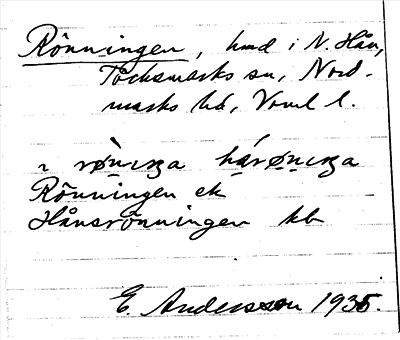 Rönningen, hmd i N. Hån,
Töcksmarks sn, Nord-
marks hd, Vrml l.
ı rø̀nıŋa hárønıŋa
Rönningen ek
Hånsrönningen kb
E. Andersson 1935.